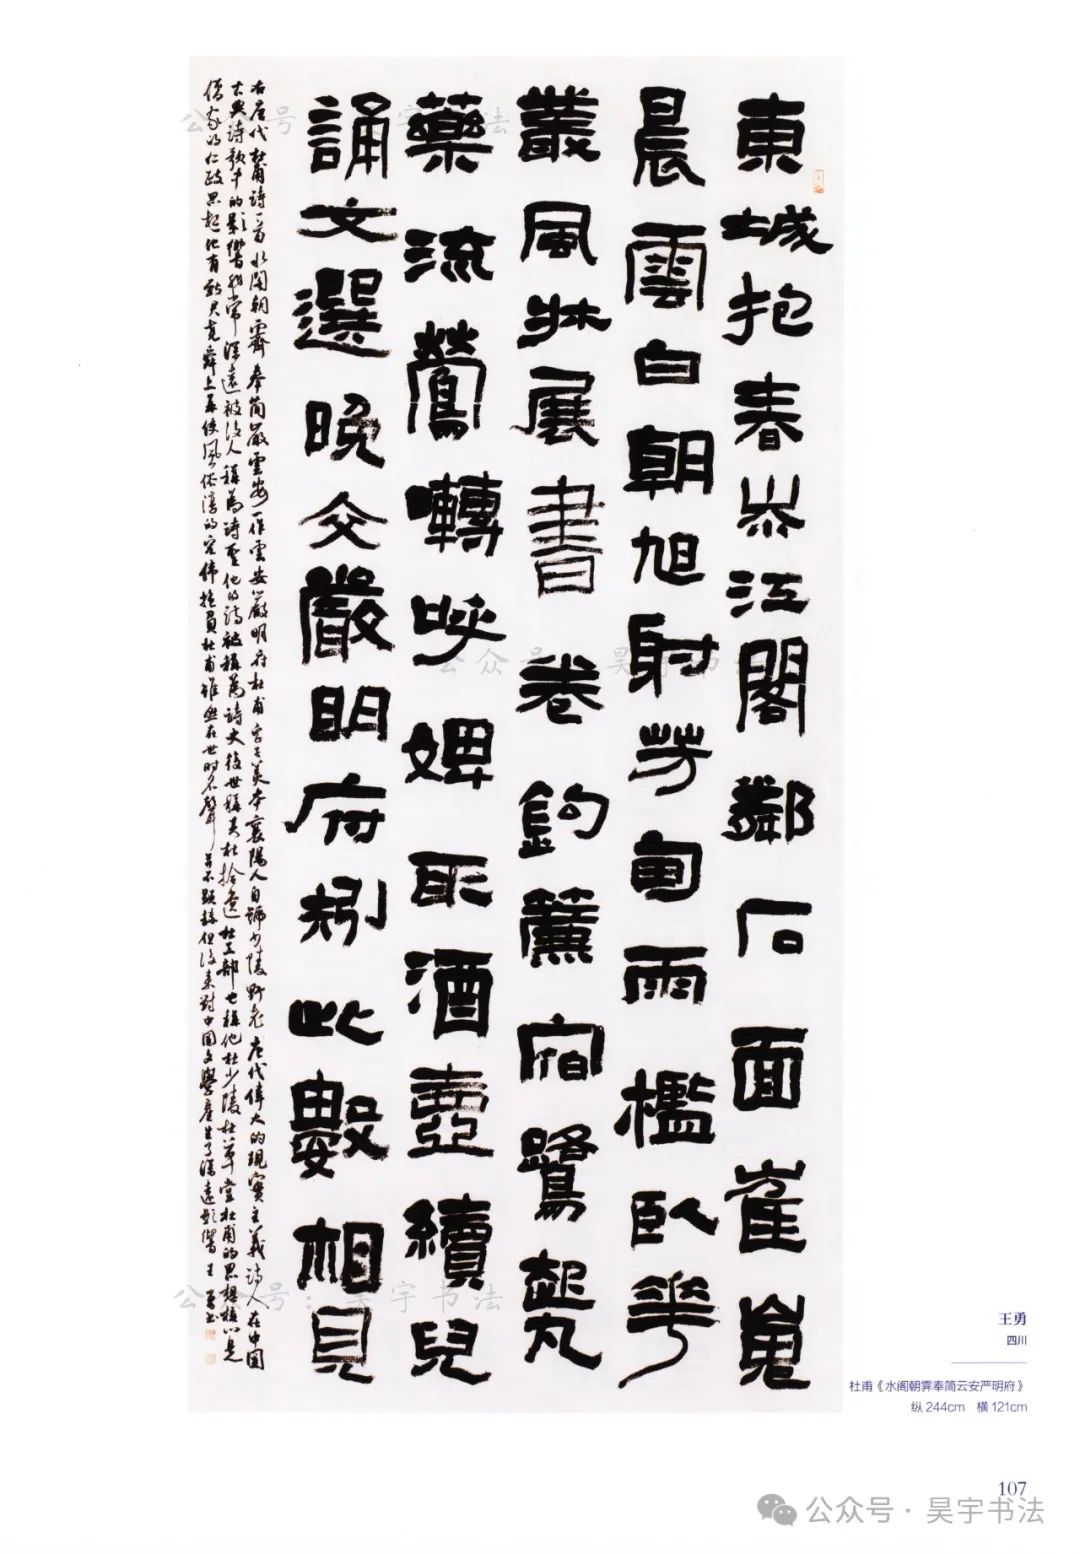 東城抱春岑江閣鄰石面崔嵬
晨雲白朝旭射芳甸雨檻臥華
叢風牀展書卷鈎簾宿鷺起丸
藥流鶯囀呼婢取酒壺續兒
誦文選晚交嚴明府矧此數相見
右唐代杜甫詩一首水閣朝霽奉簡嚴雲安一作雲安嚴明府杜甫字子美本襄陽人自號少陵野老唐代偉大的現實主義詩人在中國
古典詩歌中的影響非常深遠被後人稱為詩聖他的詩被稱為詩史後世稱其杜拾遺杜工部也稱他杜少陵杜草堂杜甫的思想核心是
儒家的仁政思想他有致君堯舜上再使風俗淳的宏偉抱負杜甫雖然在世時名聲並不顯赫但後來對中國文學產生了深遠影響王勇書
王勇
四川
杜甫《水阁朝霁奉简云安严明府》
纵 244cm 横 121cm
107
公众号·昊宇书法